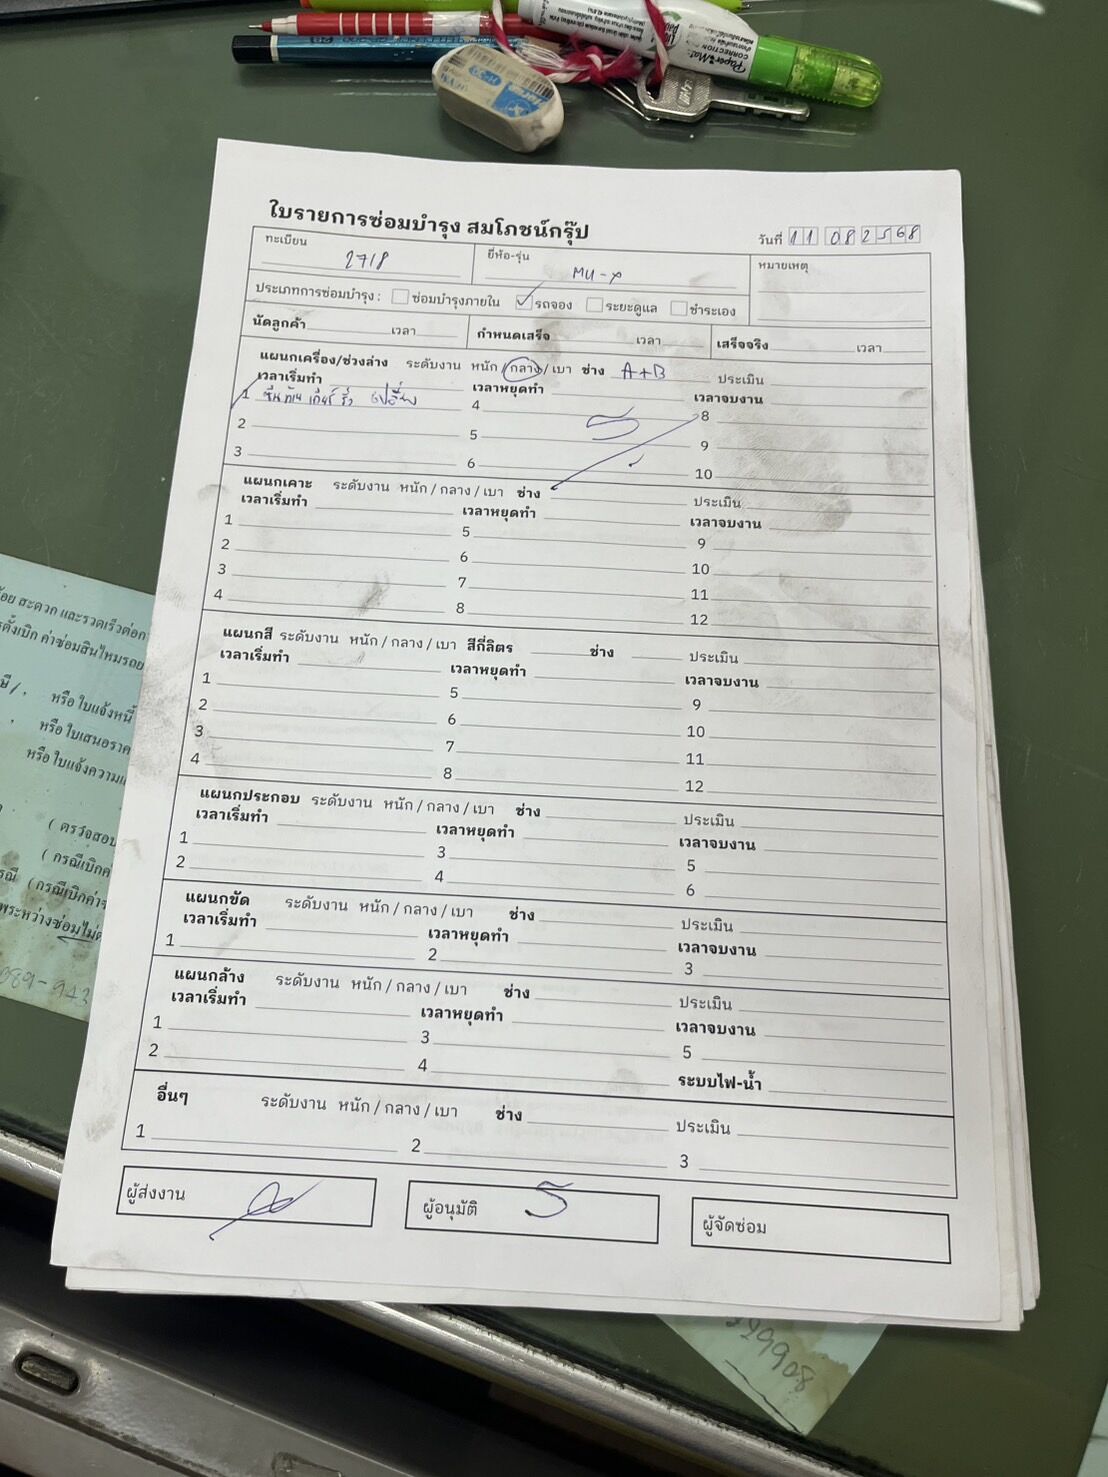 Paper Mate
CORRECTION
H-29
ใบรายการซ่อมบำรุง สมโภชน์กรุ๊ป
วันที่ 11 08 2568
ทะเบียน 2718
ยี่ห้อ-รุ่น MU-X
หมายเหตุ
ประเภทการซ่อมบำรุง : ซ่อมบำรุงภายใน ✓ รถจอง ระยะดูแล ชำระเอง
นัดลูกค้า เวลา กำหนดเสร็จ เวลา เสร็จจริง เวลา
แผนกเครื่อง/ช่วงล่าง ระดับงาน หนัก / กลาง / เบา ช่าง A+B ประเมิน
เวลาเริ่มทำ เวลาหยุดทำ เวลาจบงาน
1 เกียร์ รั่ว 4 8
2 5 9
3 6 10
แผนกเคาะ ระดับงาน หนัก / กลาง / เบา ช่าง ประเมิน
เวลาเริ่มทำ เวลาหยุดทำ เวลาจบงาน
1 5 9
2 6 10
3 7 11
4 8 12
แผนกสี ระดับงาน หนัก / กลาง / เบา สีกี่ลิตร ช่าง ประเมิน
เวลาเริ่มทำ เวลาหยุดทำ เวลาจบงาน
1 5 9
2 6 10
3 7 11
4 8 12
แผนกประกอบ ระดับงาน หนัก / กลาง / เบา ช่าง ประเมิน
เวลาเริ่มทำ เวลาหยุดทำ เวลาจบงาน
1 3 5
2 4 6
แผนกขัด ระดับงาน หนัก / กลาง / เบา ช่าง ประเมิน
เวลาเริ่มทำ เวลาหยุดทำ เวลาจบงาน
1 2 3
แผนกล้าง ระดับงาน หนัก / กลาง / เบา ช่าง ประเมิน
เวลาเริ่มทำ เวลาหยุดทำ เวลาจบงาน
1 3 5
2 4 ระบบไฟ-น้ำ
อื่นๆ ระดับงาน หนัก / กลาง / เบา ช่าง ประเมิน
1 2 3
ผู้ส่งงาน
ผู้อนุมัติ
ผู้จัดซ่อม
สะดวก และรวดเร็วต่อ
ค่าซ่อมสินไหมรถย
หรือ ใบแจ้งหนี้
หรือ ใบเสนอราค
หรือ ใบแจ้งความ
( ตรวจสอบ
( กรณีเบิกค่
( กรณีเบิกค่า
ระหว่างซ่อมไม่
089-943